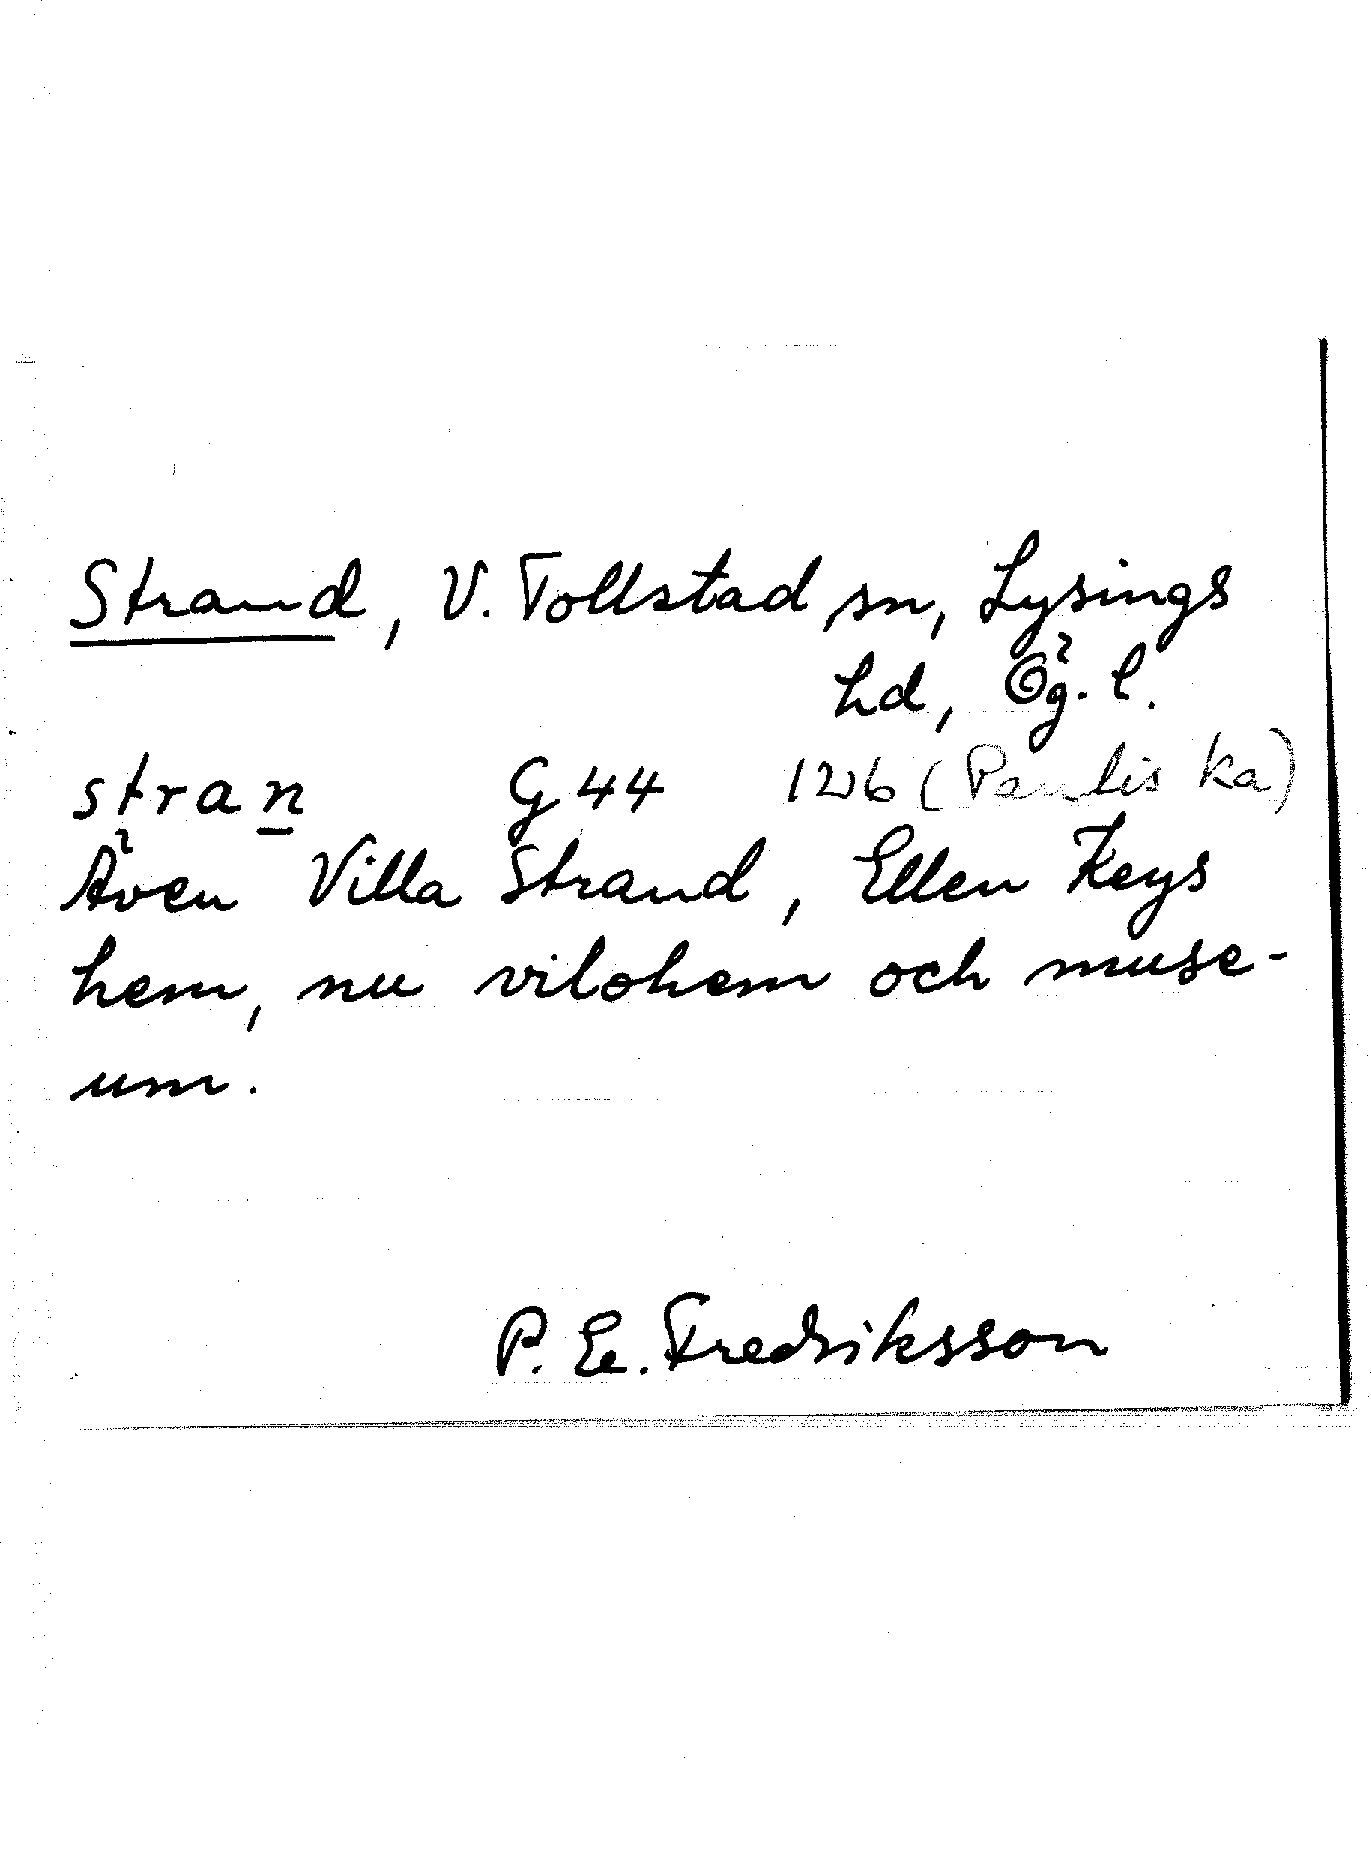 Strand, V. Tollstad sn, Lysings
hd, Ög. l.
stran G44 1206 (Paulis ka)
Även Villa Strand, Ellen Keys
hem, nu vilohem och muse-
um.
P. E. Fredriksson